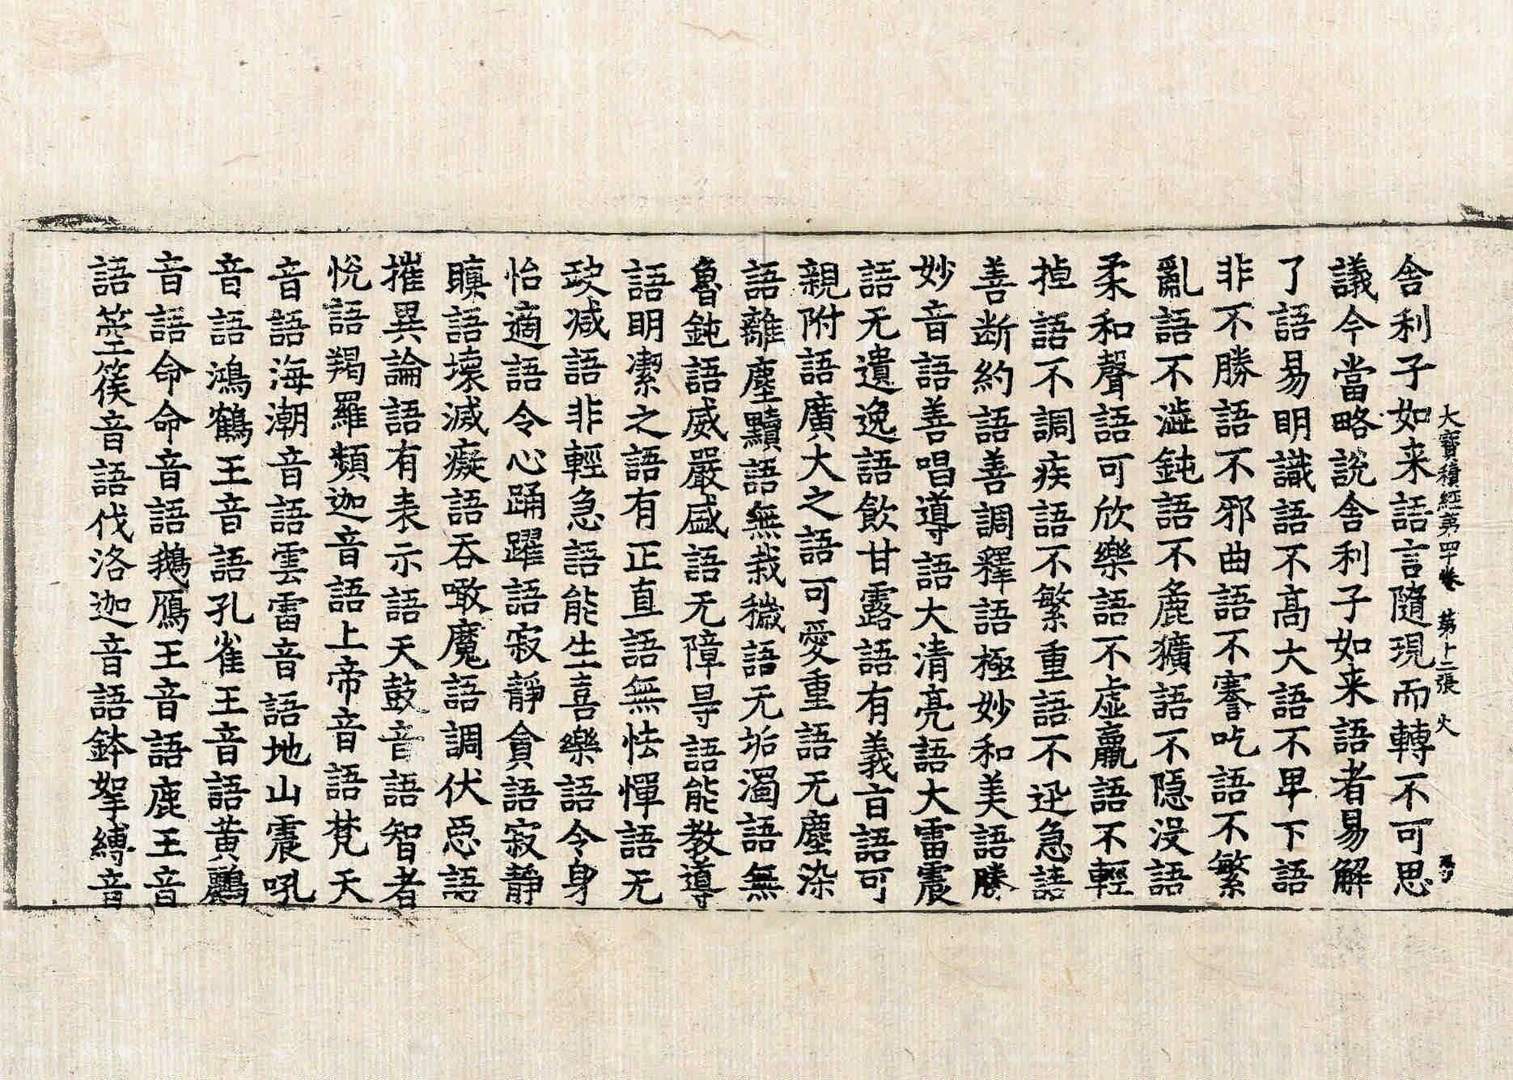 大寶積經第四十卷 第十二張 火
舍利子如来語言隨現而轉不可思
議今當略說舍利子如来語者易解
了語易明識語不高大語不卑下語
非不勝語不邪曲語不謇吃語不繁
亂語不澁鈍語不麁獷語不隱没語
柔和聲語可欣樂語不虛羸語不輕
掉語不調疾語不繁重語不迅急語
善断約語善調釋語極妙和美語勝
妙音語善唱導語大清亮語大雷震
語无遺逸語飲甘露語有義㫖語可
親附語廣大之語可愛重語无塵染
語離塵黷語無栽穢語无垢濁語無
魯鈍語威嚴盛語无障㝵語能教導
語明潔之語有正直語無怯憚語无
缺减語非輕急語能生喜樂語令身
怡適語令心踊躍語寂靜貪語寂靜
瞋語壞滅癡語吞噉魔語調伏惡語
摧異論語有表示語天鼓音語智者
悅語羯羅頻迦音語上帝音語梵天
音語海潮音語雲雷音語地山震吼
音語鴻鶴王音語孔雀王音語黄鸝
音語命命音語鵝鴈王音語鹿王音
語箜篌音語伐洛迦音語鉢拏縛音